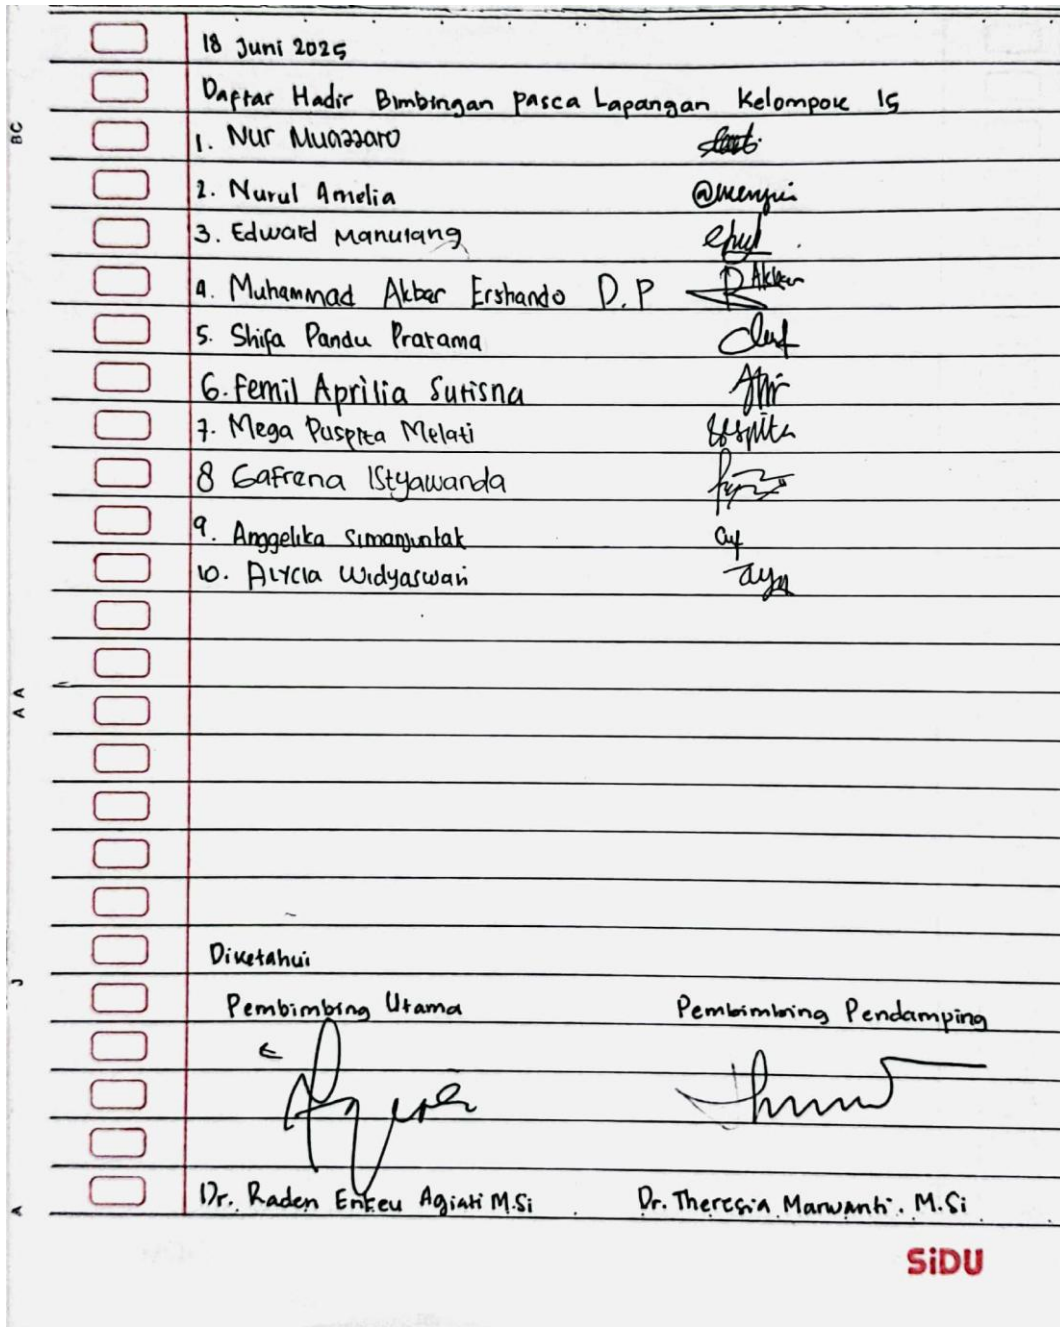 18 Juni 2025
Daftar Hadir Bimbingan Pasca Lapangan Kelompok 15
1. Nur Muazzaro
2. Nurul Amelia
3. Edward Manulang
4. Muhammad Akbar Ershando D.P Akbar
5. Shifa Pandu Pratama
6. Femil Aprilia Sutisna
7. Mega Puspita Melati
8 Gafrena Istyawanda
9. Anggelika Simanjuntak
10. Alycia Widyaswari
Diketahui
Pembimbing Utama Pembimbing Pendamping
Dr. Raden Enkeu Agiati M.Si Dr. Theresia Marwanti. M.Si
SiDU